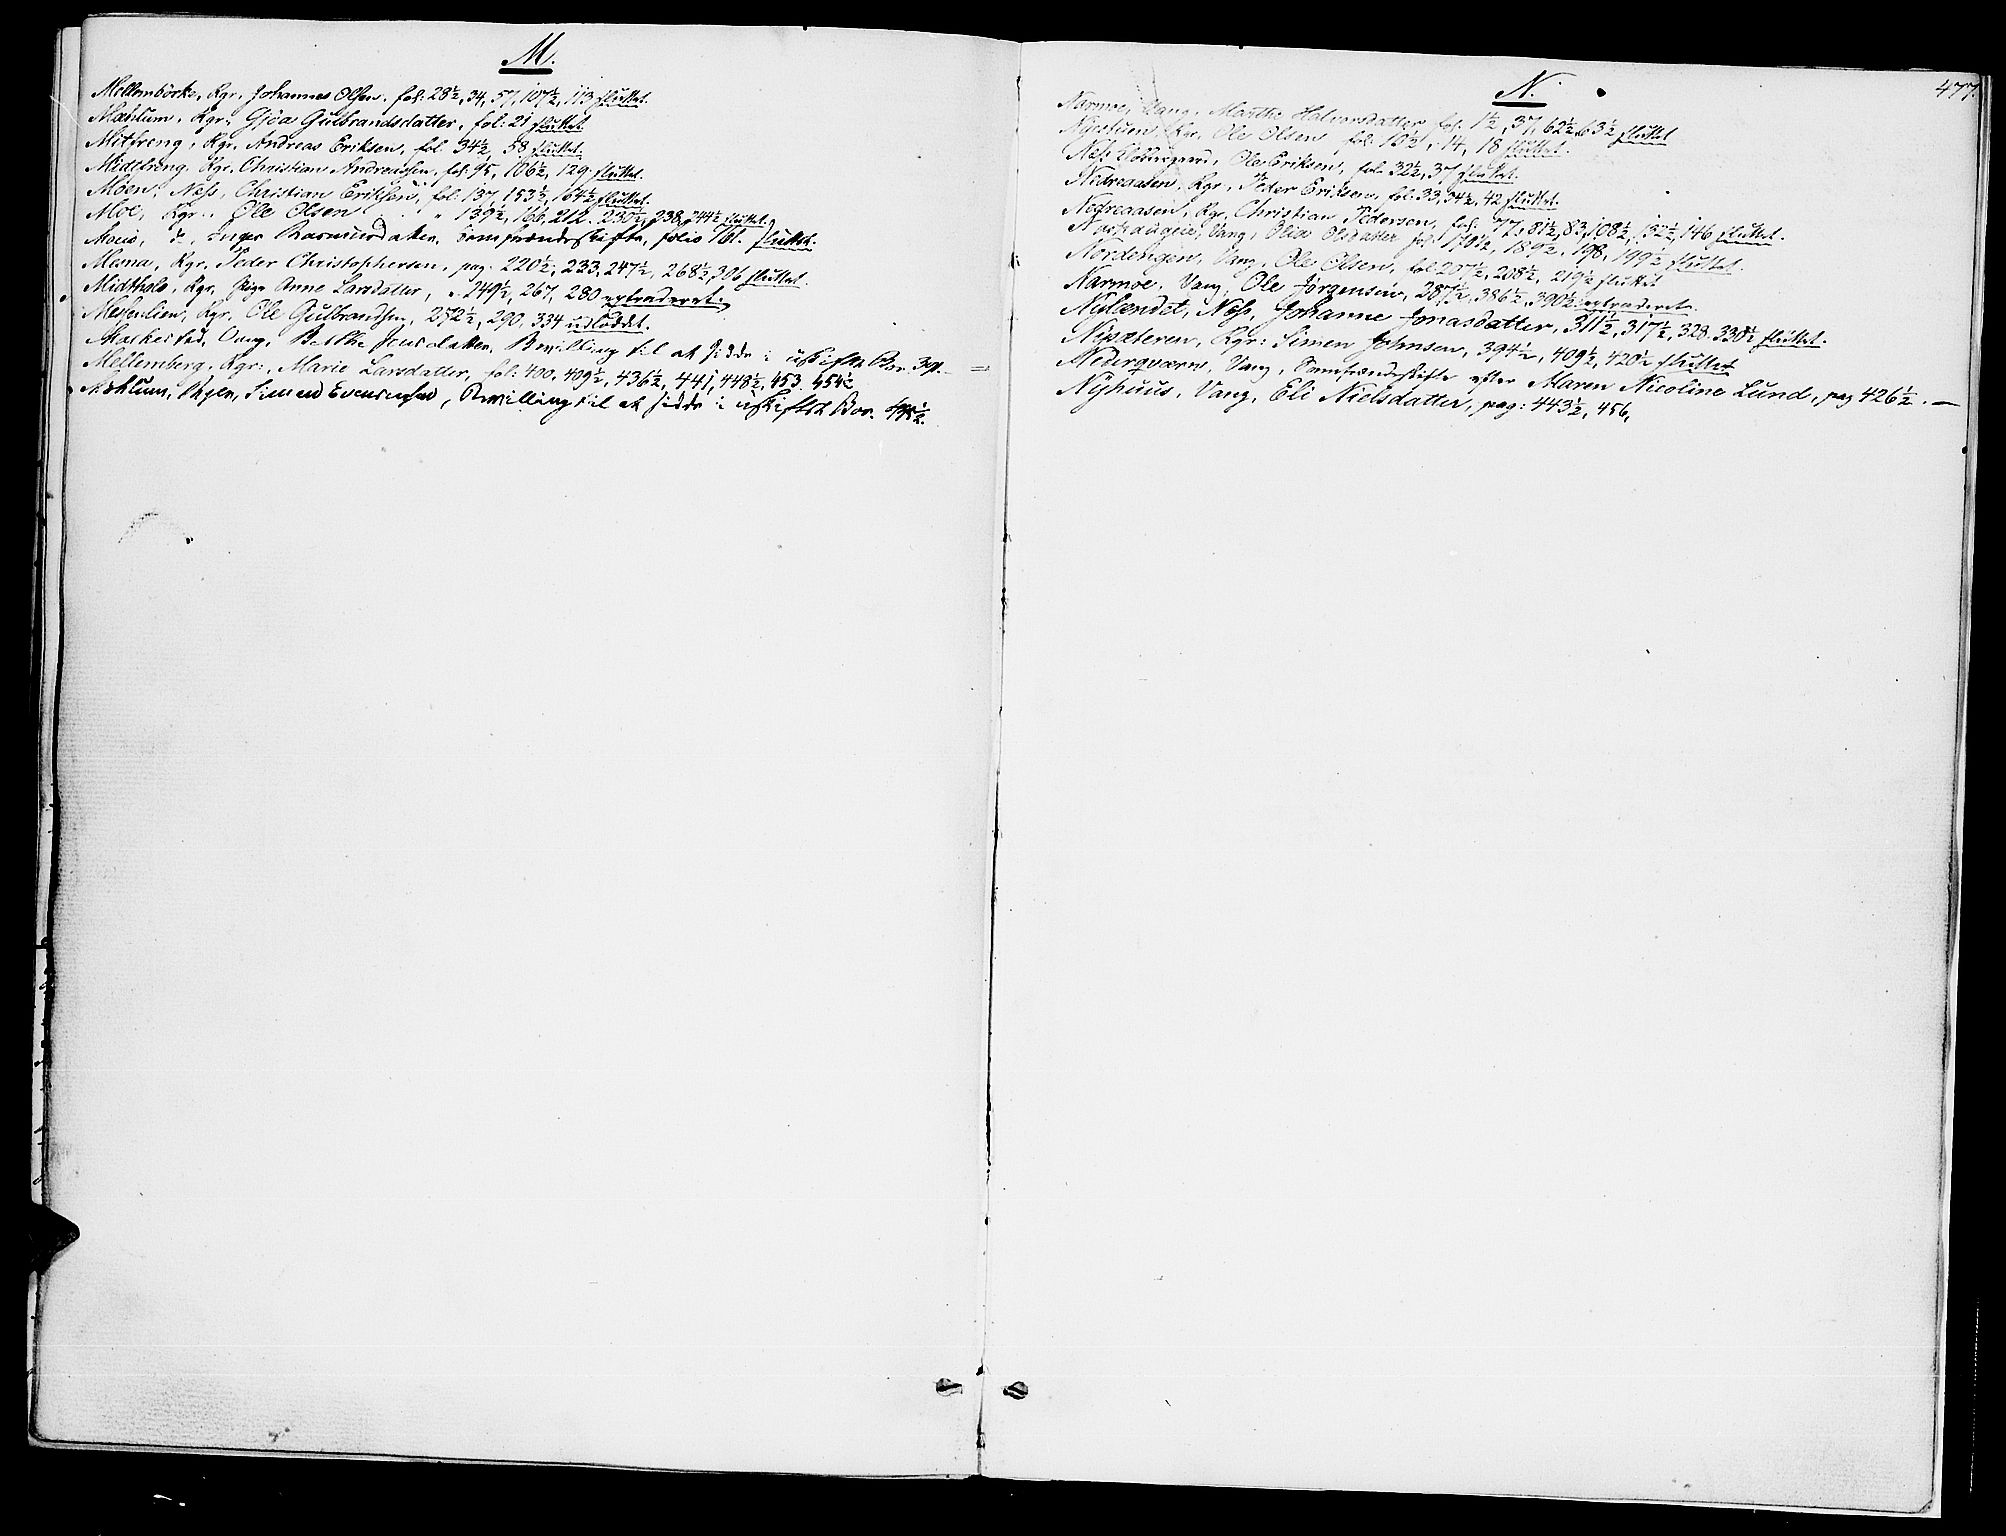 M.
Mellembörke, Rgr. Johannes Olsen, fol: 28½, 34, 57, 107½, 113 sluttet.
Mæhlum, Rgr: Gjöa Gulbrandsdatter, fol: 21 sluttet.
Mitfreng, Rgr. Andreas Eriksen, fol 34½, 58 sluttet.
Midtfreng, Rgr. Christian Andreassen, fol: 95, 106½, 129 sluttet.
Moen, Næss, Christian Eriksen, fol: 137, 153½, 164½ sluttet.
Moe, Rgr., Ole Olsen " 139½, 166, 212. 230½, 238, 244½ sluttet.
Moen, do, Inger Rasmusdatter, Samfrændeskifte, folio 161. sluttet.
Mesna, Rgr. Peder Christophersen, pag. 220½, 233, 247½, 268½, 306 sluttet.
Midthole, Rgr, Pige Anne Larsdatter, " 249½, 267, 280 extraderet.
Messenlien, Rgr. Ole Gulbrandsen, 272½, 290, 334 udloddet.
Bevilling til at sidde i uskiftet Bo.
Mellemberg, Rgr:, Marie Larsdatter, fol: 400, 409½, 436½, 441, 448½, 453. 454½
Mæhlum, Simen Evensen, Bevilling til at sidde i uskiftet Bo.
477.
N.
Narmoe, Vang, Marthe Halvorsdatter fol. 1½, 37, 62½, 63½ sluttet
Nystuen, Rgr, Ole Olsen, fol: 10½, 14, 18 sluttet.
Næss Ole Eriksen, fol. 32½, 37 sluttet.
Nedreaasen, Rgr, Peder Eriksen, fol. 33, 34½, 42 sluttet.
Nedreaasen, Rgr. Christian Pedersen, fol: 77, 81½, 83, 108½, 132½, 146 sluttet.
Vang, Olia Olsdatter fol 170½, 189½, 198, 199½ sluttet.
Nordengen, Vang, Ole Olsen, fol 207½, 208½, 219½ sluttet
Narmoe, Vang, Ole Jörgensen, 287½, 386½, 390½ extraderet.
Nylændet, Næss, Johanne Jonasdatter, 311½, 317½, 328. 338½ sluttet.
Nysæteren, Rgr: Simen Johnsen, 394½, 409½, 420½ sluttet
Nederqværn, Vang, Samfrændeskifte efter Maren Nicoline Lund, pag 426½. —
Nyhuus, Vang, Eli Nielsdatter, pag: 443½, 456,